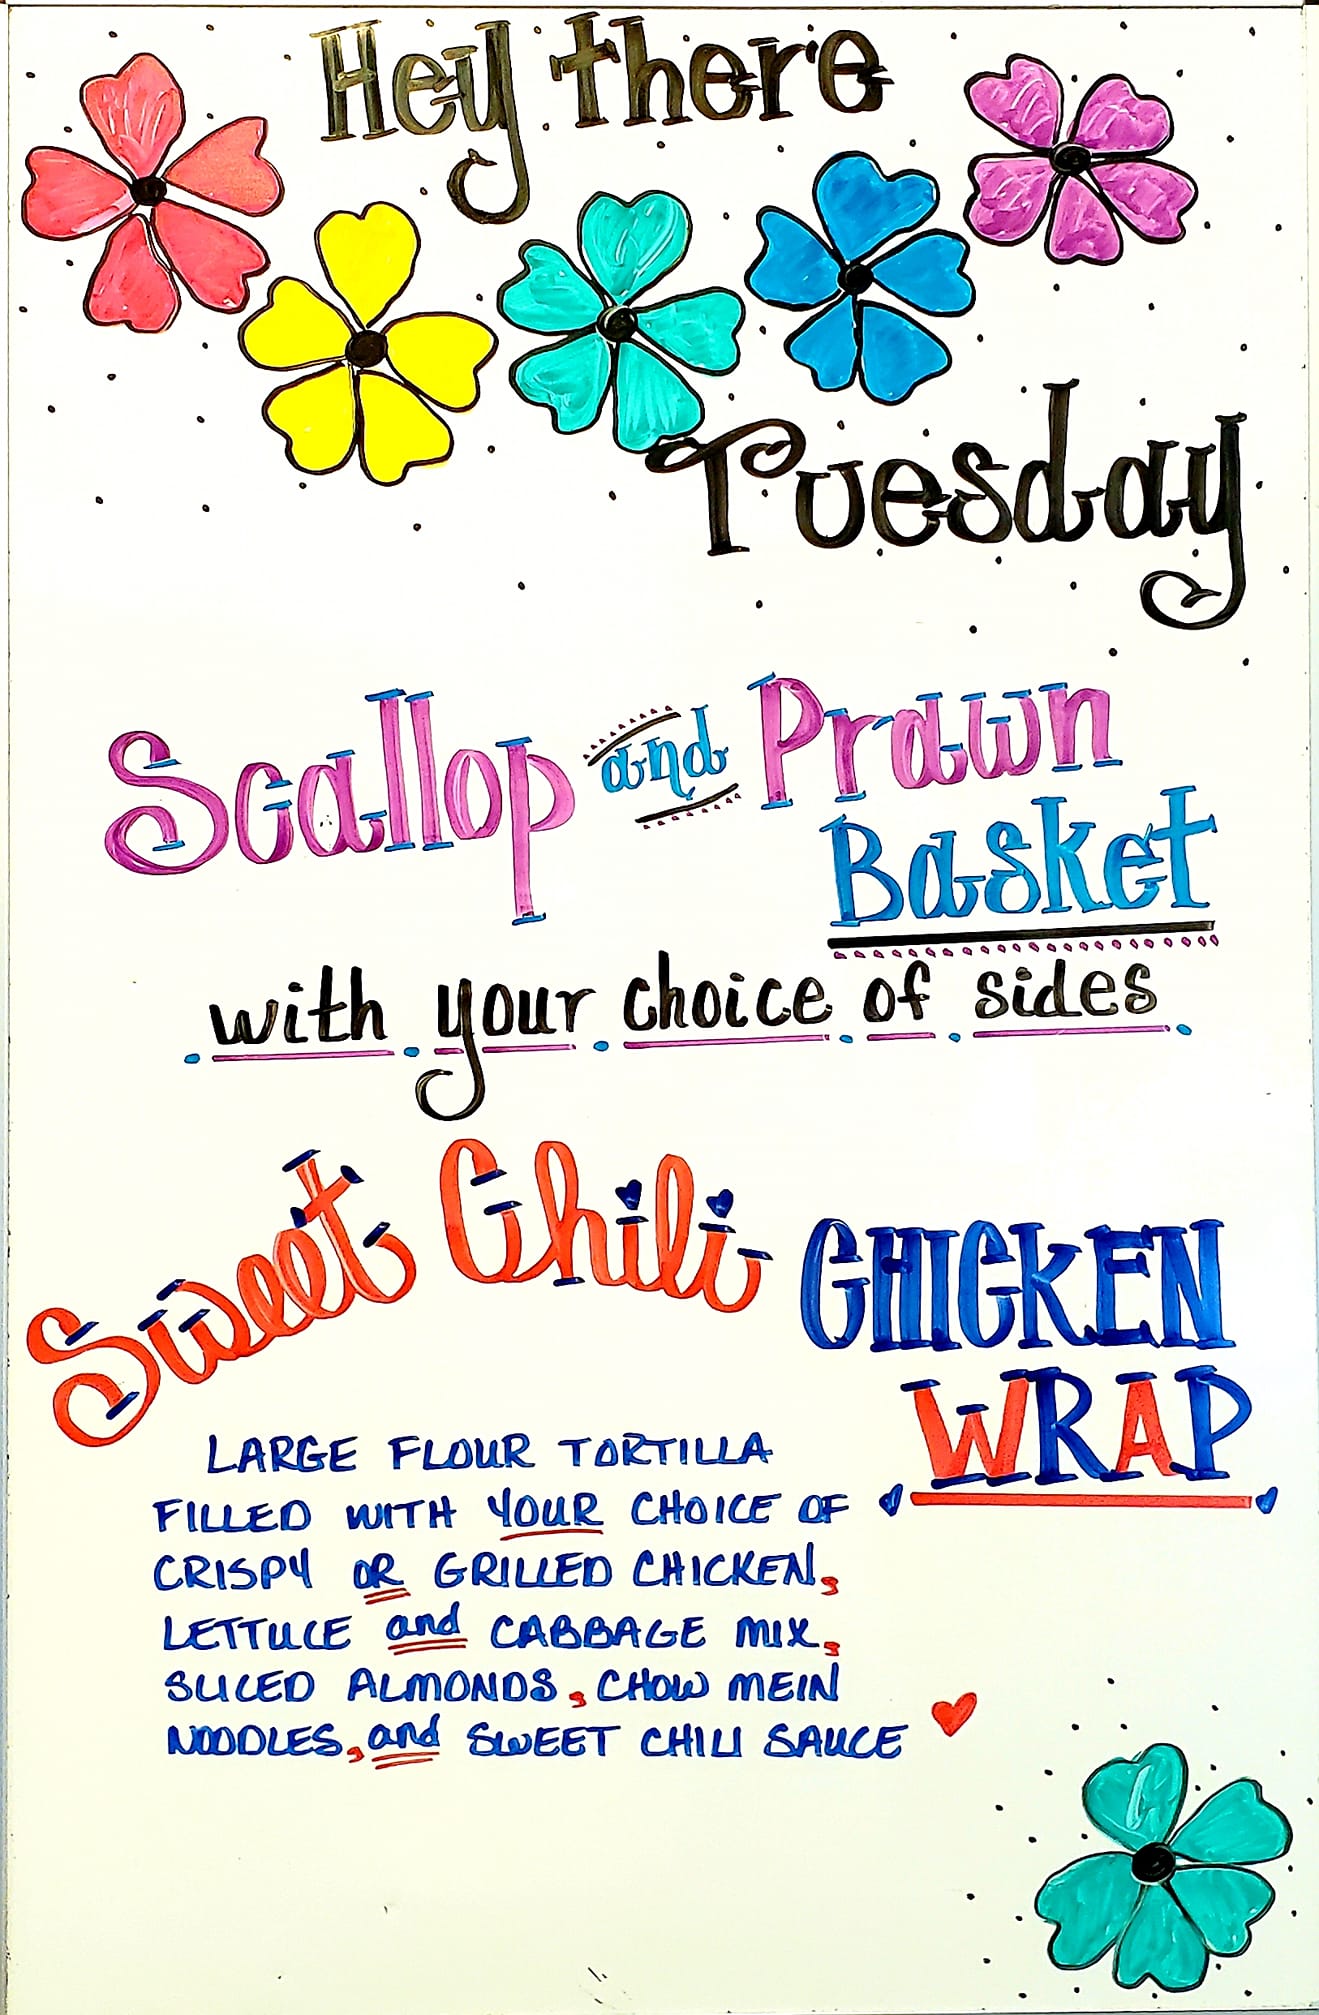 Hey there
Tuesday
Scallop and Prawn
Basket
with your choice of sides
Sweet Chili CHICKEN
WRAP
LARGE FLOUR TORTILLA
FILLED WITH YOUR CHOICE OF
CRISPY OR GRILLED CHICKEN,
LETTUCE and CABBAGE MIX,
SLICED ALMONDS, CHOW MEIN
NOODLES, and SWEET CHILI SAUCE